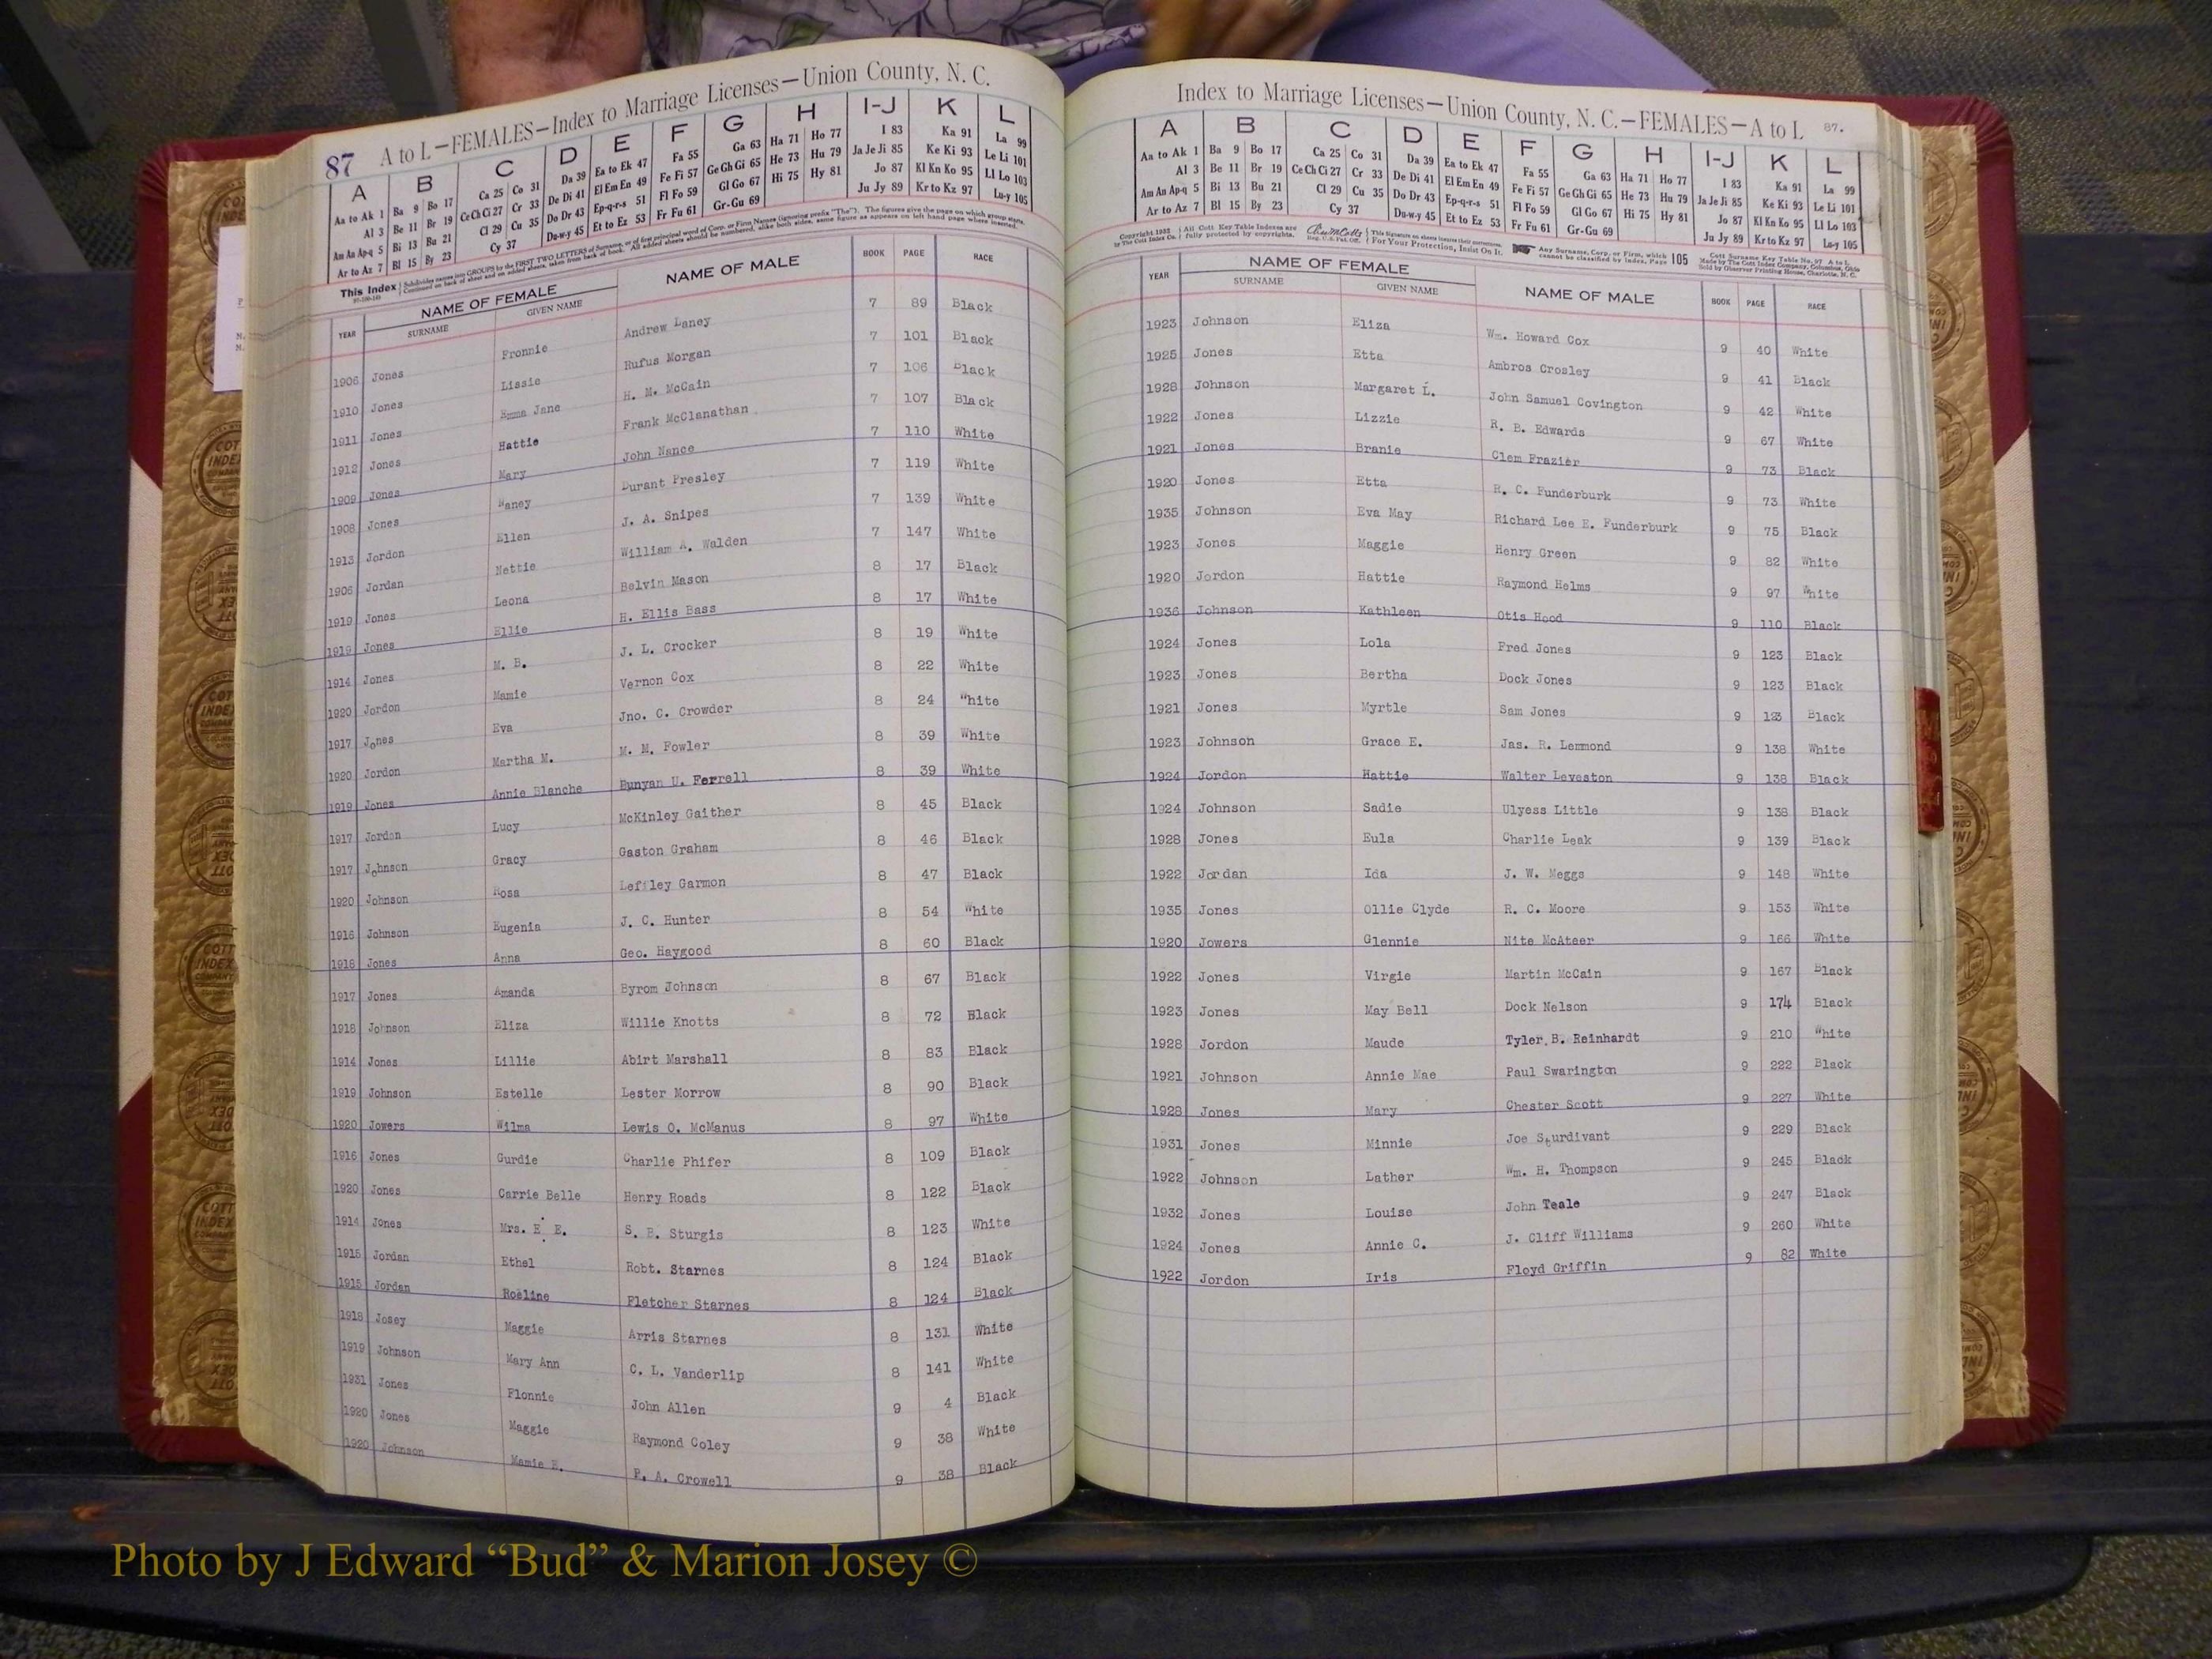 87 A to L—FEMALES—Index to Marriage Licenses—Union County, N. C.
A B C D E F G H I-J K L
Aa to Ak 1 Ba 9 Bo 17 Ca 25 Co 31 Da 39 Ea to Ek 47 Fa 55 Ga 63 Ha 71 Ho 77 I 83 Ka 91 La 99
Al 3 Be 11 Br 19 Ce Ch Ci 27 Cr 33 De Di 41 El Em En 49 Fe Fi 57 Ge Gh Gi 65 He 73 Hu 79 Ja Je Ji 85 Ke Ki 93 Le Li 101
Am An Ap-q 5 Bi 13 Bu 21 Cl 29 Cu 35 Do Dr 43 Ep-q-r-s 51 Fl Fo 59 Gl Go 67 Hi 75 Hy 81 Jo 87 Kl Kn Ko 95 Ll Lo 103
Ar to Az 7 Bl 15 By 23 Cy 37 Du-w-y 45 Et to Ez 53 Fr Fu 61 Gr-Gu 69 Ju Jy 89 Kr to Kz 97 Lu-y 105
This Index
YEAR NAME OF FEMALE SURNAME GIVEN NAME NAME OF MALE BOOK PAGE RACE
1906 Jones Fronnie Andrew Laney 7 89 Black
1910 Jones Lissie Rufus Morgan 7 101 Black
1911 Jones Emma Jane H. M. McCain 7 106 Black
1912 Jones Hattie Frank McClanathan 7 107 Black
1909 Jones Mary John Nance 7 110 White
1908 Jones Naney Durant Presley 7 119 White
1913 Jordon Ellen J. A. Snipes 7 139 White
1906 Jordan Nettie William A. Walden 7 147 White
1919 Jones Leona Belvin Mason 8 17 Black
1919 Jones Ellie H. Ellis Bass 8 17 White
1914 Jones M. B. J. L. Crocker 8 19 White
1920 Jordon Mamie Vernon Cox 8 22 White
1917 Jones Eva Jno. C. Crowder 8 24 White
1920 Jordon Martha M. M. M. Fowler 8 39 White
1919 Jones Annie Blanche Bunyan U. Ferrell 8 39 White
1917 Jordan Lucy McKinley Gaither 8 45 Black
1917 Johnson Gracy Gaston Graham 8 46 Black
1920 Johnson Rosa Leffley Garmon 8 47 Black
1916 Johnson Eugenia J. C. Hunter 8 54 White
1918 Jones Anna Geo. Haygood 8 60 Black
1917 Jones Amanda Byrom Johnson 8 67 Black
1918 Johnson Eliza Willie Knotts 8 72 Black
1914 Jones Lillie Abirt Marshall 8 83 Black
1919 Johnson Estelle Lester Morrow 8 90 Black
1920 Jowers Wilma Lewis O. McManus 8 97 White
1916 Jones Gurdie Charlie Phifer 8 109 Black
1920 Jones Carrie Belle Henry Roads 8 122 Black
1914 Jones Mrs. E. E. S. B. Sturgis 8 123 White
1915 Jordan Ethel Robt. Starnes 8 124 Black
1915 Jordan Roeline Fletcher Starnes 8 124 Black
1918 Josey Maggie Arris Starnes 8 131 White
1919 Johnson Mary Ann C. L. Vanderlip 8 141 White
1931 Jones Flonnie John Allen 9 4 Black
1920 Jones Maggie Raymond Coley 9 38 White
1920 Johnson Mamie E. P. A. Crowell 9 38 Black
Index to Marriage Licenses—Union County, N. C.—FEMALES—A to L 87.
A B C D E F G H I-J K L
Aa to Ak 1 Ba 9 Bo 17 Ca 25 Co 31 Da 39 Ea to Ek 47 Fa 55 Ga 63 Ha 71 Ho 77 I 83 Ka 91 La 99
Al 3 Be 11 Br 19 Ce Ch Ci 27 Cr 33 De Di 41 El Em En 49 Fe Fi 57 Ge Gh Gi 65 He 73 Hu 79 Ja Je Ji 85 Ke Ki 93 Le Li 101
Am An Ap-q 5 Bi 13 Bu 21 Cl 29 Cu 35 Do Dr 43 Ep-q-r-s 51 Fl Fo 59 Gl Go 67 Hi 75 Hy 81 Jo 87 Kl Kn Ko 95 Ll Lo 103
Ar to Az 7 Bl 15 By 23 Cy 37 Du-w-y 45 Et to Ez 53 Fr Fu 61 Gr-Gu 69 Ju Jy 89 Kr to Kz 97 Lu-y 105
Copyright 1932 by The Cott Index Co. All Cott Key Table Indexes are fully protected by copyrights. Reg. U.S. Pat. Off. This Signature on sheets insures their correctness. For Your Protection, Insist On It. Any Surname, Corp. or Firm, which cannot be classified by Index, Page 105 Cott Surname Key Table No. 97 A to L Made by The Cott Index Company, Columbus, Ohio Sold by Observer Printing House, Charlotte, N. C.
YEAR NAME OF FEMALE SURNAME GIVEN NAME NAME OF MALE BOOK PAGE RACE
1923 Johnson Eliza Wm. Howard Cox 9 40 White
1925 Jones Etta Ambros Crosley 9 41 Black
1928 Johnson Margaret L. John Samuel Covington 9 42 White
1922 Jones Lizzie R. B. Edwards 9 67 White
1921 Jones Branie Clem Frazier 9 73 Black
1920 Jones Etta R. C. Funderburk 9 73 White
1935 Johnson Eva May Richard Lee E. Funderburk 9 75 Black
1923 Jones Maggie Henry Green 9 82 White
1920 Jordon Hattie Raymond Helms 9 97 White
1936 Johnson Kathleen Otis Hood 9 110 Black
1924 Jones Lola Fred Jones 9 123 Black
1923 Jones Bertha Dock Jones 9 123 Black
1921 Jones Myrtle Sam Jones 9 123 Black
1923 Johnson Grace E. Jas. R. Lemmond 9 138 White
1924 Jordon Hattie Walter Leveston 9 138 Black
1924 Johnson Sadie Ulyess Little 9 138 Black
1928 Jones Eula Charlie Leak 9 139 Black
1922 Jordan Ida J. W. Meggs 9 148 White
1935 Jones Ollie Clyde R. C. Moore 9 153 White
1920 Jowers Glennie Nite McAteer 9 166 White
1922 Jones Virgie Martin McCain 9 167 Black
1923 Jones May Bell Dock Nelson 9 174 Black
1928 Jordon Maude Tyler B. Reinhardt 9 210 White
1921 Johnson Annie Mae Paul Swarington 9 222 Black
1928 Jones Mary Chester Scott 9 227 White
1931 Jones Minnie Joe Sturdivant 9 229 Black
1922 Johnson Lather Wm. H. Thompson 9 245 Black
1932 Jones Louise John Teale 9 247 Black
1924 Jones Annie C. J. Cliff Williams 9 260 White
1922 Jordon Iris Floyd Griffin 9 82 White
Photo by J Edward “Bud” & Marion Josey ©